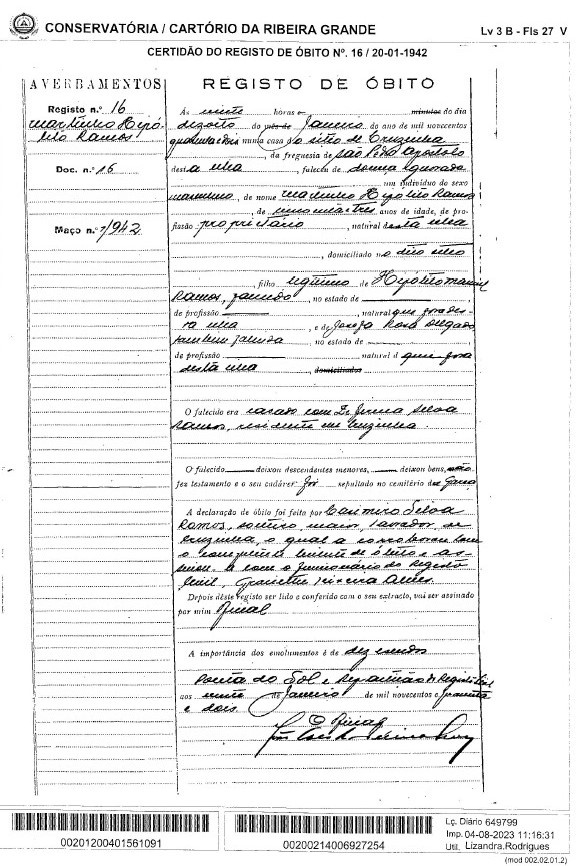 CONSERVATÓRIA / CARTÓRIO DA RIBEIRA GRANDE
Lv 3 B - Fls 27 V
CERTIDÃO DO REGISTO DE ÓBITO Nº. 16 / 20-01-1942
AVERBAMENTOS
Registo n.º 16
Martinho Hipó-
lito Ramos
Doc. n.º 16
Maço n.º 1/942
REGISTO DE ÓBITO
Às vinte horas e minutos do dia
dezoito do mês de Janeiro do ano de mil novecentos
quarenta e dois numa casa do sitio de Cruzinha
, da freguesia de São Pedro Apostolo
desta ilha, faleceu de doença ignorada
um indivíduo do sexo
masculino, de nome Martinho Hipólito Ramos
, de anos de idade, de pro-
fissão proprietário, natural desta ilha
, domiciliado no dito sitio
, filho legitimo de Hipólito Manuel
Ramos, falecido, no estado de
de profissão , natural que fora des-
ta ilha, e de Josefa Rosa Delgado
tambem falecida no estado de
de profissão natural d que fora
desta ilha, domiciliados
O falecido era casado com Silva
Ramos, residente em Cruzinha.
O falecido deixou descendentes menores, deixou bens, não
fez testamento e o seu cadáver foi sepultado no cemitério de Garça
A declaração de óbito foi feita por Casimiro Silva
Ramos, solteiro, maior, lavrador, de
Cruzinha, o qual a corroborou com
o competente bilhete de óbito e as-
sina com o funcionário do Registo
Civil,
Depois dêste registo ser lido e conferido com o seu extracto, vai ser assinado
por mim Oficial
A importância dos emolumentos é de dez escudos
Ponta do Sol e Repartição do Registo Civil
aos vinte de Janeiro de mil novecentos e quarenta
e dois.
O Oficial
00201200401561091
00200214006927254
Lç. Diário 649799
Imp. 04-08-2023 11:16:31
Util. Lizandra.Rodrigues
(mod 002.02.01.2)